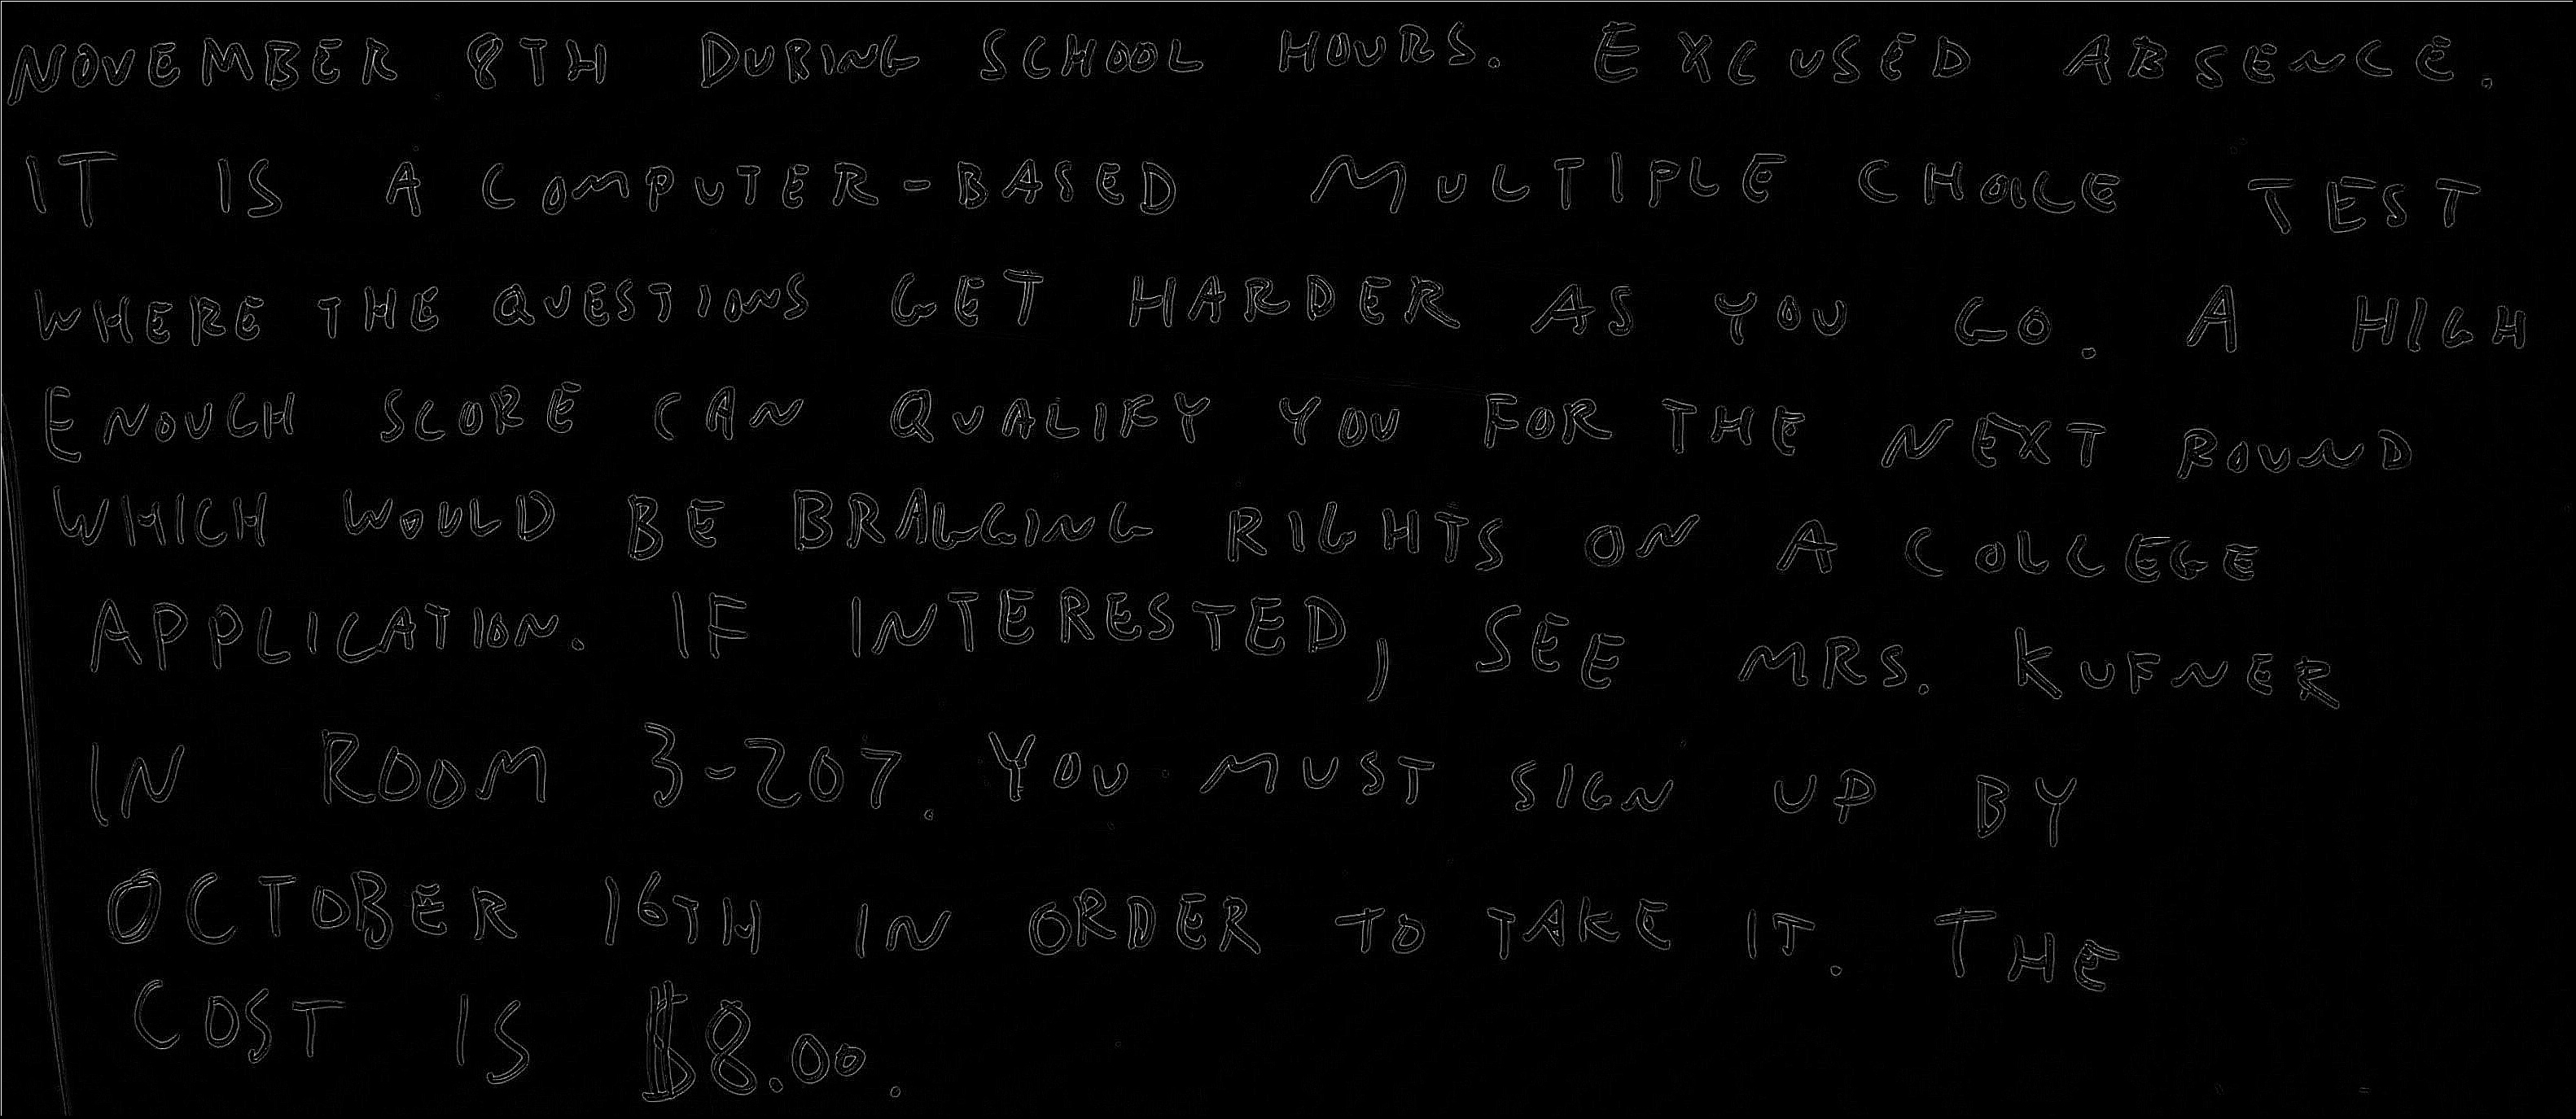 NOVEMBER 8TH DURING SCHOOL HOURS. EXCUSED ABSENCE.
IT IS A COMPUTER-BASED MULTIPLE CHOICE TEST
WHERE THE QUESTIONS GET HARDER AS YOU GO. A HIGH
ENOUGH SCORE CAN QUALIFY YOU FOR THE NEXT ROUND
WHICH WOULD BE BRAGGING RIGHTS ON A COLLEGE
APPLICATION. IF INTERESTED, SEE MRS. KUFNER
IN ROOM 3-207. YOU MUST SIGN UP BY
OCTOBER 16TH IN ORDER TO TAKE IT. THE
COST IS $8.00.